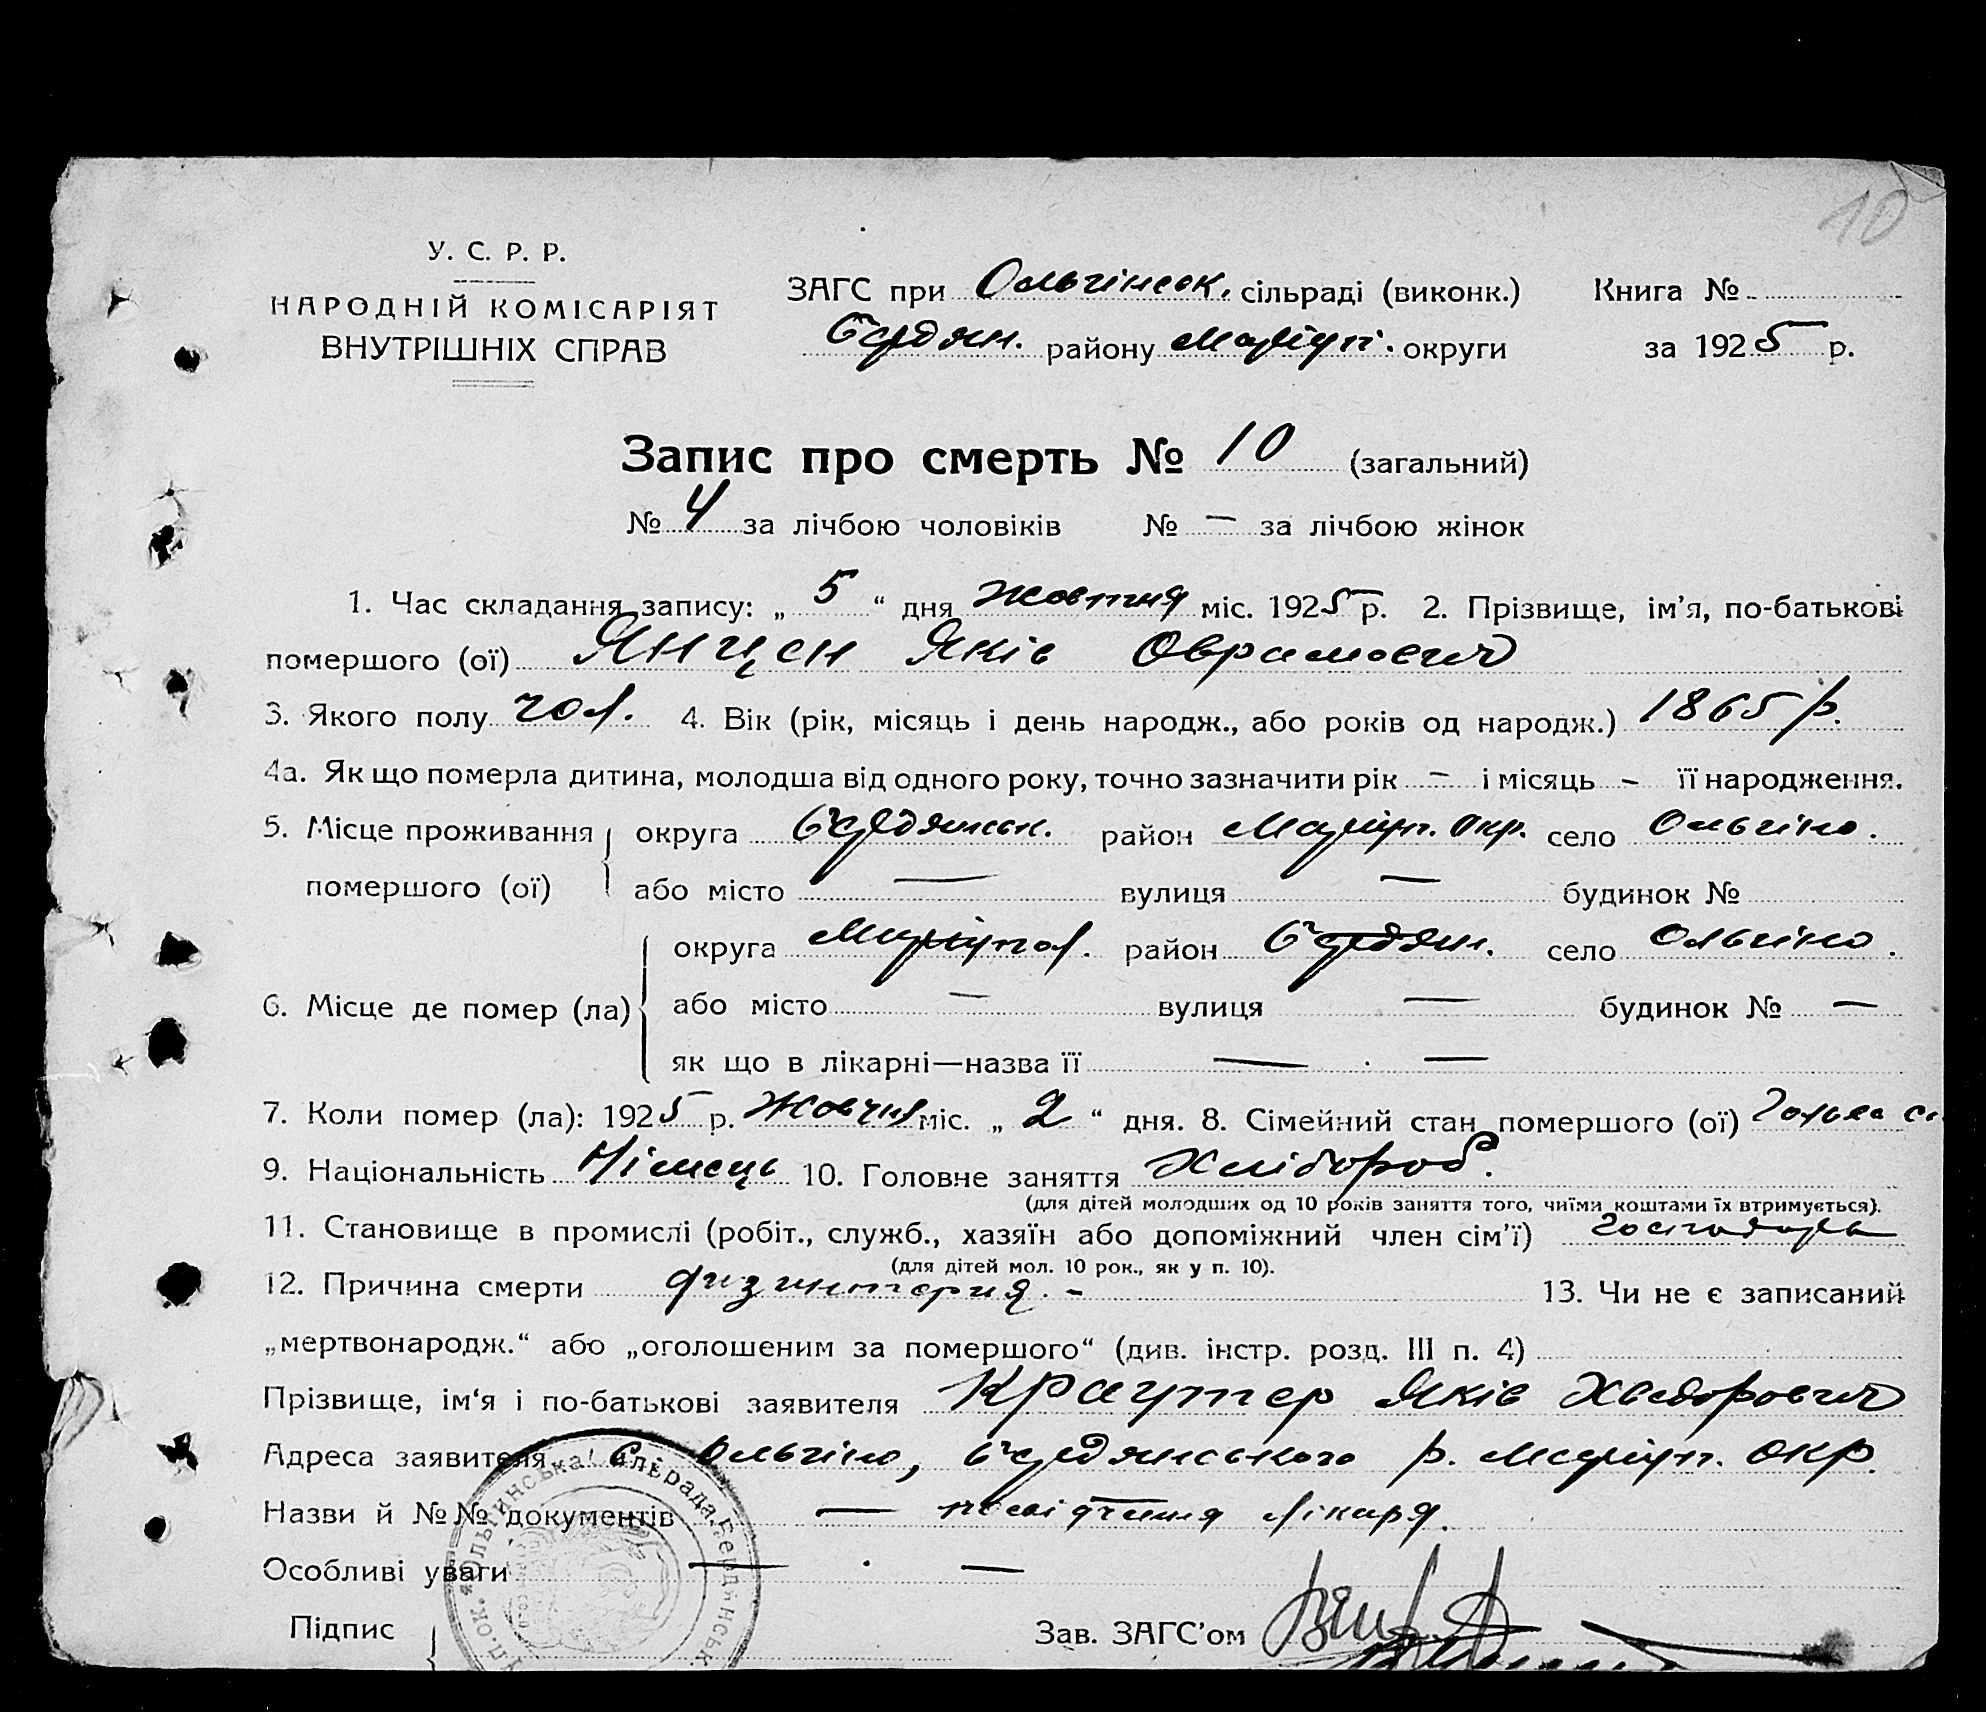 10
У. С. Р. Р.
НАРОДНІЙ КОМІСАРІЯТ
ВНУТРІШНІХ СПРАВ
ЗАГС при Ольгінськ. сільраді (виконк.) Книга №
Бердян. району Маріуп. округи за 1925 р.
Запис про смерть № 10 (загальний)
№ 4 за лічбою чоловіків № — за лічбою жінок
1. Час складання запису: „ 5 “ дня жовтня міс. 1925 р. 2. Прізвище, ім’я, по-батькові
помершого (ої) Янцен Яків Оврамович
3. Якого полу чол. 4. Вік (рік, місяць і день народж., або років од народж.) 1865 р.
4а. Як що померла дитина, молодша від одного року, точно зазначити рік – і місяць – її народження.
5. Місце проживання округа Бердянськ. район Маріуп. окр. село Ольгіно.
помершого (ої) або місто — вулиця — будинок №
округа Маріупол. район Бердян. село Ольгіно.
6. Місце де помер (ла) або місто — вулиця — будинок № —
як що в лікарні—назва її — . —
7. Коли помер (ла): 1925 р. Жовтня міс. „ 2 “ дня. 8. Сімейний стан помершого (ої)
9. Національність Німець 10. Головне заняття Хлібороб.
(для дітей молодших од 10 років заняття того, чиїми коштами їх втримується).
11. Становище в промислі (робіт., служб., хазяїн або допоміжний член сім’ї) господарь
(для дітей мол. 10 рок., як у п. 10).
12. Причина смерти дизинтерия. - 13. Чи не є записаний
„мертвонародж.“ або „оголошеним за помершого“ (див. інстр. розд. III п. 4)
Прізвище, ім‘я і по-батькові заявителя Краутер Яків Хведорович
Адреса заявителя с. Ольгіно, Бердянського р. Маріуп. окр.
Назви й №№ документів — посвідчення лікаря.
Особливі уваги — . —
Підпис Зав. ЗАГС’ом
Ольгинська сільрада Бердянськ.